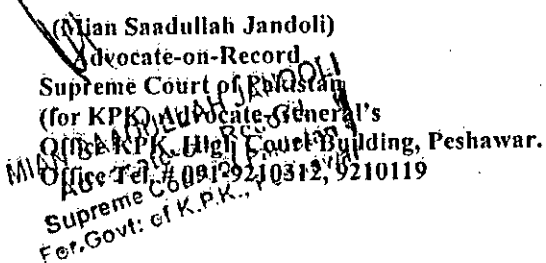 (Mian Saadullah Jandoli)
Advocate-on-Record
Supreme Court of Pakistan
(for KPK) Advocate-General's
Office KPK, High Court Building, Peshawar.
Office Tel. # 091-9210312, 9210119
MIAN SAADULLAH JANDOLI
Supreme Court
For. Govt: of K.P.K.,